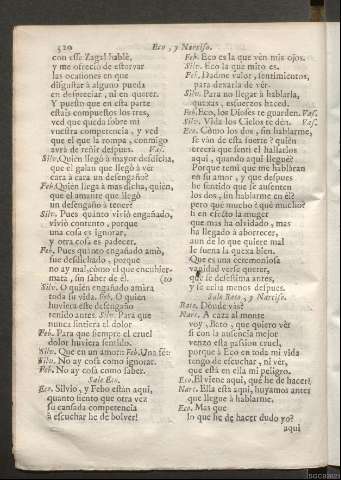 520
Eco, y Narciso.
con esse Zagal hablè,
y me ofrecio de estorvar
las ocasiones en que
disgustar à alguno pueda
en despreciar, ni en querer.
Y puesto que en esta parte
estais compuestos los tres,
ved que queda sobre mi
vuestra competencia, y ved
que el que la rompa, conmigo
avrà de reñir despues. Vase.
Silv. Quien llegò à mayor desdicha,
que el galan que llegò à vèr
cara à cara un desengaño?
Feb. Quien llega à mas dicha, quien,
que el amante que llegò
un desengaño à tener?
Silv. Pues quanto viviò engañado,
viviò contento, porque
una cosa es ignorar,
y otra cosa es padecer.
Feb. Pues quanto engañado amò,
fue desdichado, porque
no ay mal, como el que encubier-
mata, sin saber de èl. (to
Silv. O quien engañado amira
toda su vida. Feb. O quien
huviera este desengaño
tenido antes. Silv. Para que
nunca sintiera el dolor
Feb. Para que siempre el cruel
dolor huviera sentido.
Silv. Que en un amor: Feb. Una fè:
Silv. No ay cosa como ignorar.
Feb. No ay cosa como saber.
Sale Eco.
Eco. Silvio, y Febo estàn aqui,
quanto siento que otra vez
su cansada competencia
à escuchar he de bolver!
Feb. Eco es la que vèn mis ojos.
Silv. Eco la que miro es.
Feb. Dadme valor, sentimientos,
para dexarla de vèr.
Silv. Para no llegar à hablarla,
quexas, esfuerzos haced.
Feb. Eco, los Dioses te guarden. Vas.
Silv. Vida los Cielos te dèn. Vas.
Eco. Còmo los dos, sin hablarme,
se vàn de esta suerte? quièn
creerà que sentì el hallarlos
aqui, quando aqui lleguè?
Porque temì que me hablàran
en su amor, y que despues
he sentido que se ausenten
los dos, sin hablarme en èl?
pero què mucho? què mucho?
si en efecto la muger
que mas ha olvidado, mas
ha llegado à aborrecer,
aun de lo que quiere mal
le suena la quexa bien.
Que es una ceremoniosa
vanidad verse querer,
que se desestima antes,
y se echa menos despues.
Sale Bato, y Narciso.
Bato. Dònde vàs?
Narc. A caza al monte
voy, Bato, que quiero vèr
si con la ausencia mejor
venzo esta passion cruel,
porque à Eco en toda mi vida
tengo de escuchar, ni vèr,
que està en ella mi peligro.
Eco. El viene aqui, què he de hacer?
Narc. Ella està aqui, huyamos antes
que llegue à hablarme.
Eco. Mas que
lo que he de hacer dudo yo?
aqui